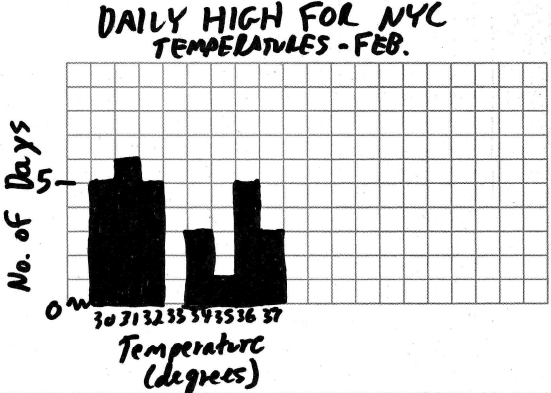 DAILY HIGH FOR NYC
TEMPERATURES - FEB.
No. of Days
5
0
30 31 32 33 34 35 36 37
Temperature
(degrees)